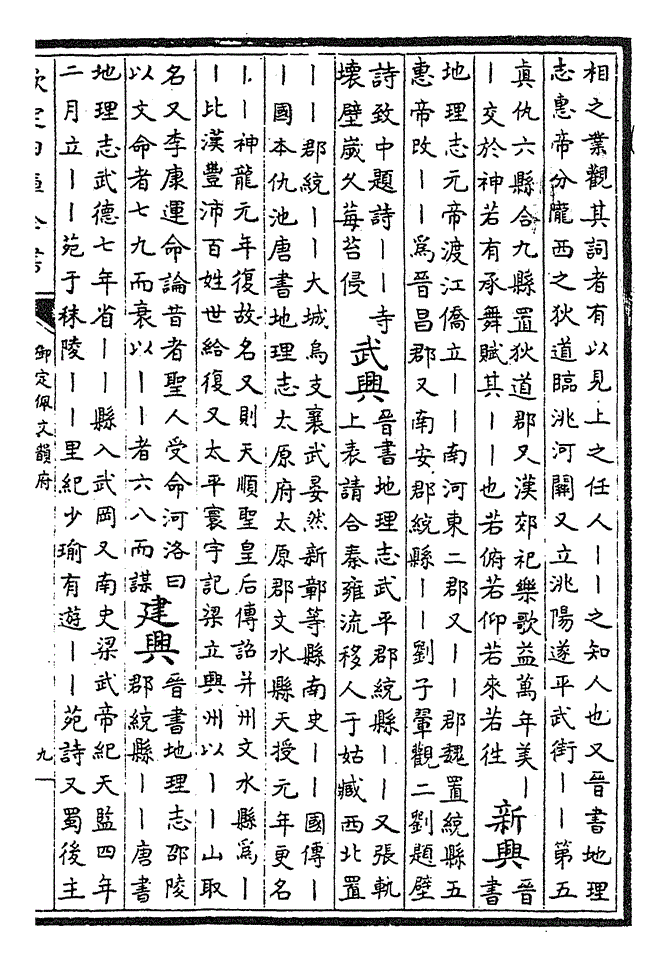 相之業觀其詞者有以見上之任人丨丨之知人也又晉書地理
志惠帝分隴西之狄道臨洮河關又立洮陽遂平武街丨丨第五
真仇六縣合九縣置狄道郡又漢郊祀樂歌益萬年美丨
丨交於神若有承舞賦其丨丨也若俯若仰若來若往
新興
晉
書
地理志元帝渡江僑立丨丨南河東二郡又丨丨郡魏置統縣五
惠帝改丨丨為晉昌郡又南安郡統縣丨丨劉子翬觀二劉題壁
詩致中題詩丨丨寺
壞壁歲久莓苔侵
武興
晉書地理志武平郡統縣丨丨又張軌
上表請合秦雍流移人于姑臧西北置
丨丨郡統丨丨大城烏支襄武晏然新鄣等縣南史丨丨國傳丨
丨國本仇池唐書地理志太原府太原郡文水縣天授元年更名
丨丨神龍元年復故名又則天順聖皇后傳詔并州文水縣為丨
丨比漢豐沛百姓世給復又太平寰宇記梁立興州以丨丨山取
名又李康運命論昔者聖人受命河洛曰
以文命者七九而衰以丨丨者六八而謀
建興
晉書地理志邵陵
郡統縣丨丨唐書
地理志武德七年省丨丨縣入武岡又南史梁武帝紀天監四年
二月立丨丨苑于秣陵丨丨里紀少瑜有遊丨丨苑詩又蜀後主
欽定四庫全書
御定佩文韻府
九